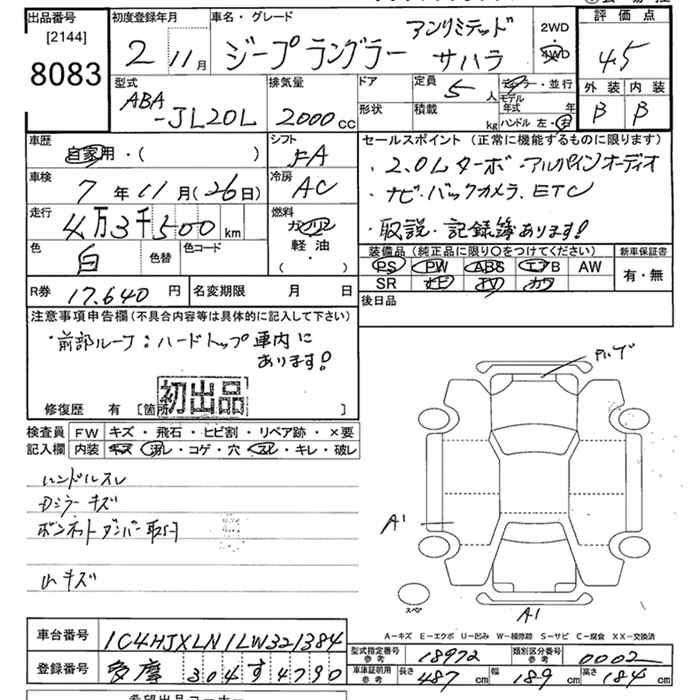 出品番号
[2144]
8083
初度登録年月
2 11月
車名・グレード
ジープラングラー アンリミテッド サハラ
2WD
4WD
評価点
4.5
外装 内装
B B
型式
ABA-JL20L
排気量
2000cc
ドア
形状
定員 5人
積載 kg
ディーラー・並行
モデル年式 年
ハンドル 左・右
車歴
自家用・( )
シフト
FA
車検
7年11月(26日)
冷房
AC
走行
4万3千500km
燃料
ガソリン
軽油
( ・ )
色
白
色替
色コード
R券 17,640円
名変期限 月 日
セールスポイント(正常に機能するものに限ります)
・2.0Lターボ・アルパインオーディオ
・ナビ・バックカメラ、ETC
・取説・記録簿あります!
装備品(純正品に限り○をつけてください)
PS PW ABS エアB AW
SR ナビ TV カワ
新車保証書
有・無
後日品
注意事項申告欄(不具合内容等は具体的に記入して下さい)
・前部ルーフ:ハードトップ車内に
あります!
初出品
修復歴 有 [箇所 ]
検査員記入欄
FW キズ・飛石・ヒビ割・リペア跡・×要
内装 キズ・汚レ・コゲ・穴・スレ・キレ・破レ
ハンドルスレ
Dミラーキズ
ボンネットダンパー取付
小キズ
A1
スペア
A1
A－キズ E－エクボ U－凹み W－補修跡 S－サビ C－腐食 XX－交換済
車台番号 1C4HJXLN1LW321384
登録番号 多摩 304 す 4790
型式指定番号参考 18972
類別区分番号参考 0002
車庫証明用参考 長さ 487cm 幅 189cm 高さ 184cm
希望出品コーナー